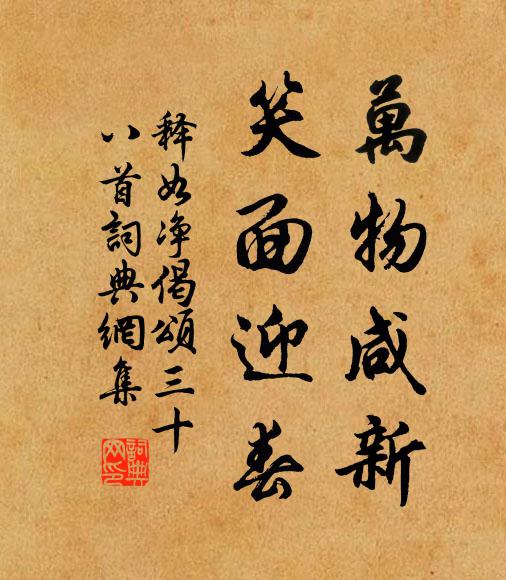 萬物咸新
笑面迎春
释如净偈頌三十
八首詞典網集
詞典网印